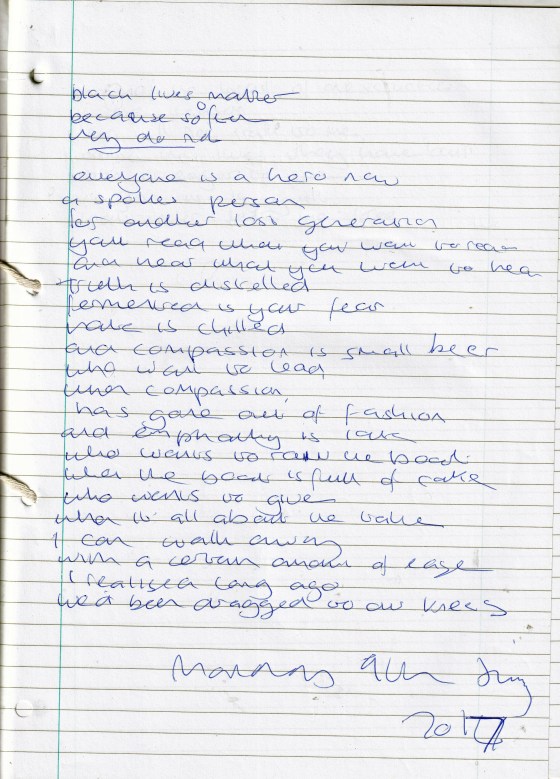 black lives matter
because so often
they do not
everyone is a hero now
a spokes person
for another loss generation
you'll read what you want to read
and hear what you want to hear
truth is distilled
fermented is your fear
hate is chilled
and compassion is small beer
who want to lead
when compassion
has gone out of fashion
and emphathy is
who wants to the boat
when the boat is full of
who wants to give
when it all about the take
I can walk away
with a certain amount of ease
I realised long ago
we'd been dragged to our knees
9th
2017